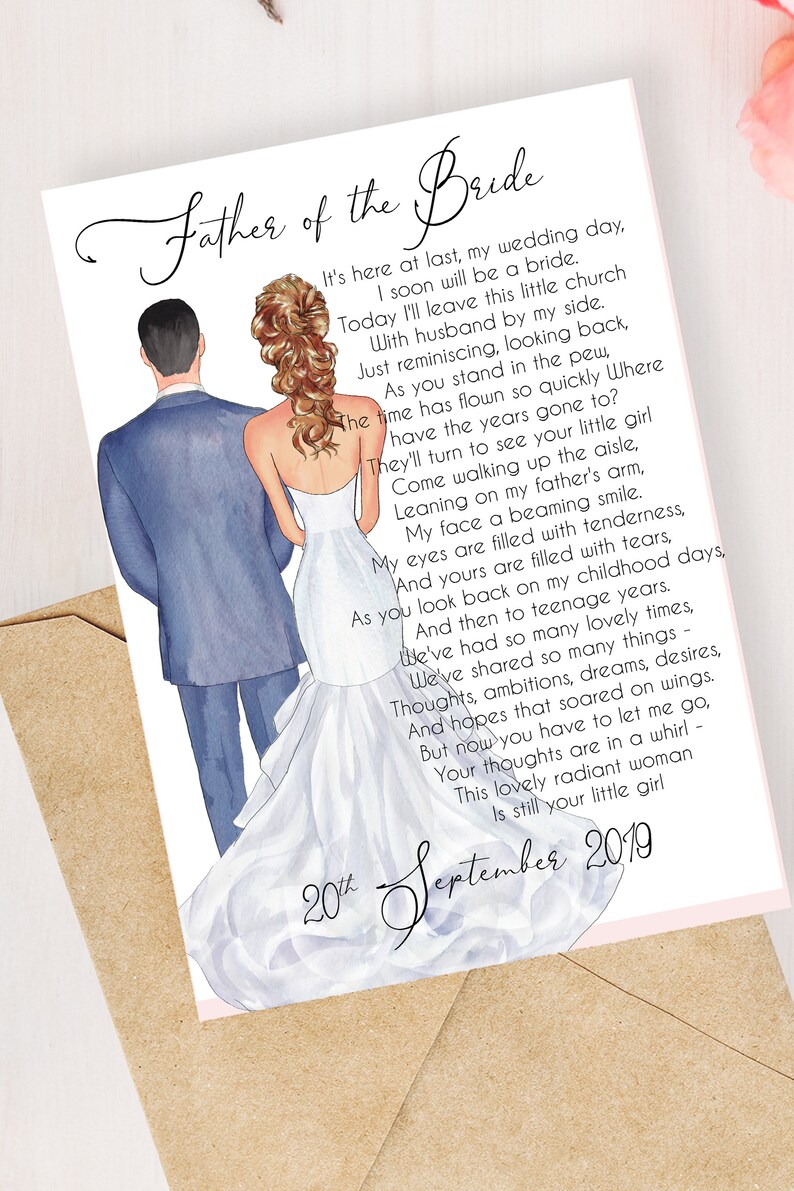 Father of the Bride
It's here at last, my wedding day,
I soon will be a bride.
Today I'll leave this little church
With husband by my side.
Just reminiscing, looking back,
As you stand in the pew,
The time has flown so quickly Where
have the years gone to?
They'll turn to see your little girl
Come walking up the aisle,
Leaning on my father's arm,
My face a beaming smile.
My eyes are filled with tenderness,
And yours are filled with tears,
As you look back on my childhood days,
And then to teenage years.
We've had so many lovely times,
We've shared so many things -
Thoughts, ambitions, dreams, desires,
And hopes that soared on wings.
But now you have to let me go,
Your thoughts are in a whirl -
This lovely radiant woman
Is still your little girl
20th September 2019